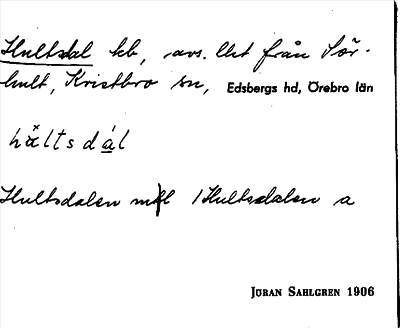 Hultsdal hb, avs. lht från Sör-
hult, Kvistbro sn, Edsbergs hd, Örebro län
hå̽ltsdál
Hultsdalen mfl / Hultsdalen a
JÖRAN SAHLGREN 1906